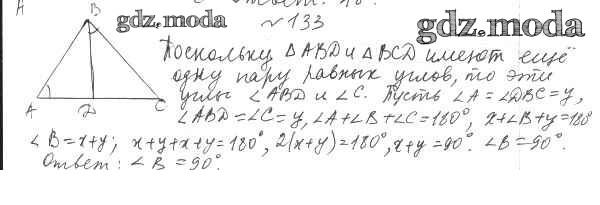 A
Ответ:
B
gdz.moda
№133
gdz.moda
Поскольку △ABD и △BCD имеют ещё
одну пару равных углов, то эти
углы ∠ABD и ∠C. Пусть ∠A = ∠DBC = y,
A D C
∠ABD = ∠C = y, ∠A + ∠B + ∠C = 180°, x + ∠B + y = 180°
∠B = x + y; x + y + x + y = 180°, 2(x + y) = 180°, x + y = 90°. ∠B = 90°.
Ответ: ∠B = 90°.